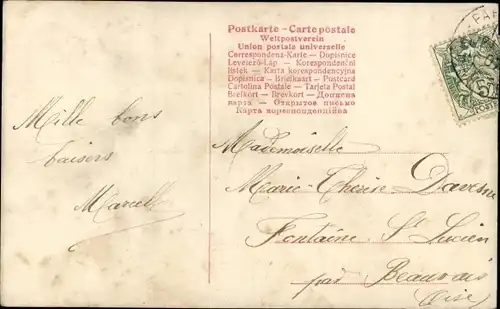 Postkarte - Carte postale
Weltpostverein
Union postale universelle
Correspondenz-Karte — Dopisnice
Levelező-Lap — Korespondenční
lístek — Karta korespondencyjna
Dopisnica — Briefkaart — Postcard
Cartolina Postale — Tarjeta Postal
Brefkort — Brevkort — Дописна
карта — Открытое письмо
Карта кореспонденційна
Mille bons
baisers
Marcelle
Mademoiselle
Marie-Thérèse Davesne
Fontaine St Lucien
par Beauvais
(Oise)